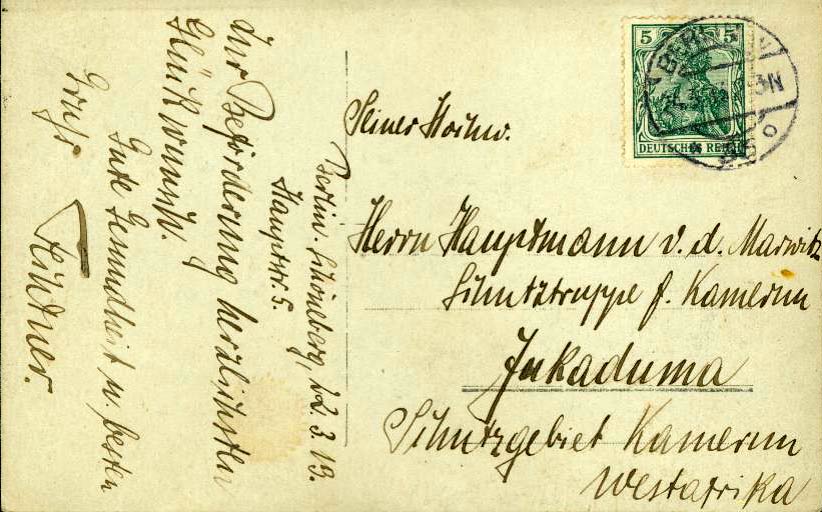 Berlin. Schöneberg, 22. 3. 13.
Hauptstr. 5.
Zur Beförderung herzlichsten
Glückwunsch.
Gute Gesundheit u. besten
Gruß
Lindner.
5 5
DEUTSCHES REICH
BERLIN
Seiner Hochw.
Herrn Hauptmann v. d. Marwitz
Schutztruppe f. Kamerun
Jukaduma
Schutzgebiet Kamerun
Westafrika